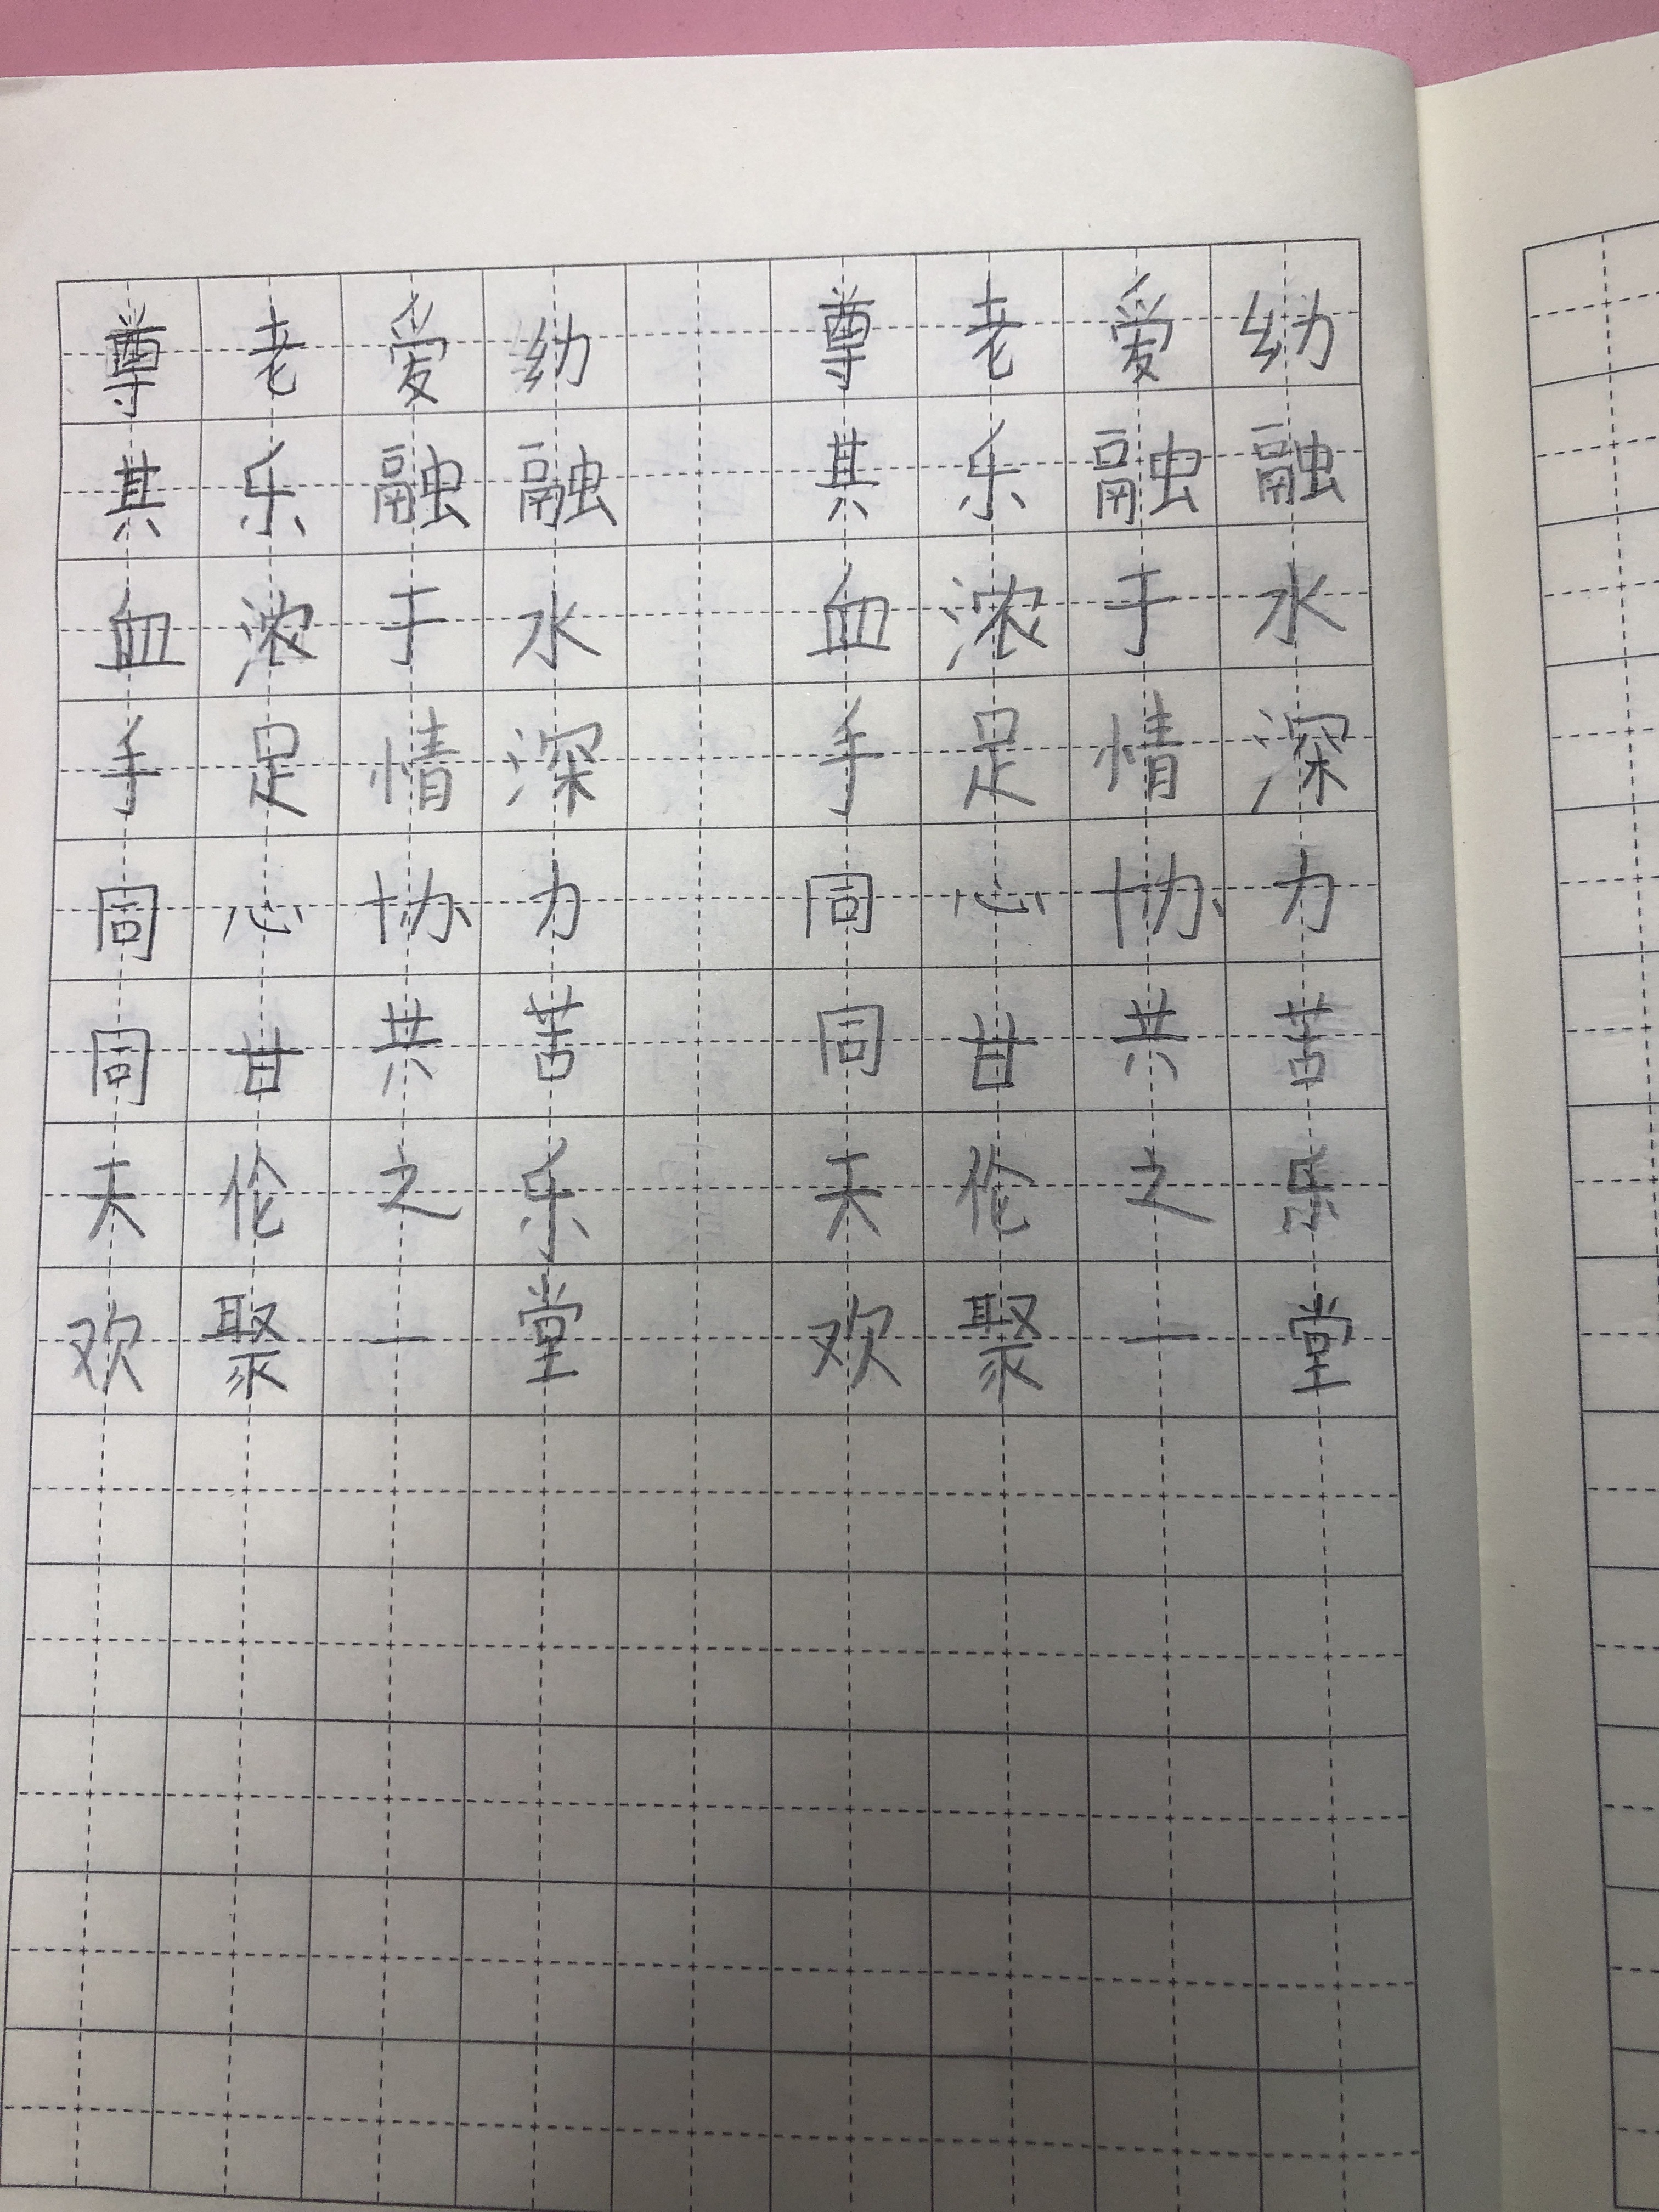 尊老爱幼 尊老爱幼
其乐融融 其乐融融
血浓于水 血浓于水
手足情深 手足情深
同心协力 同心协力
同甘共苦 同甘共苦
天伦之乐 天伦之乐
欢聚一堂 欢聚一堂